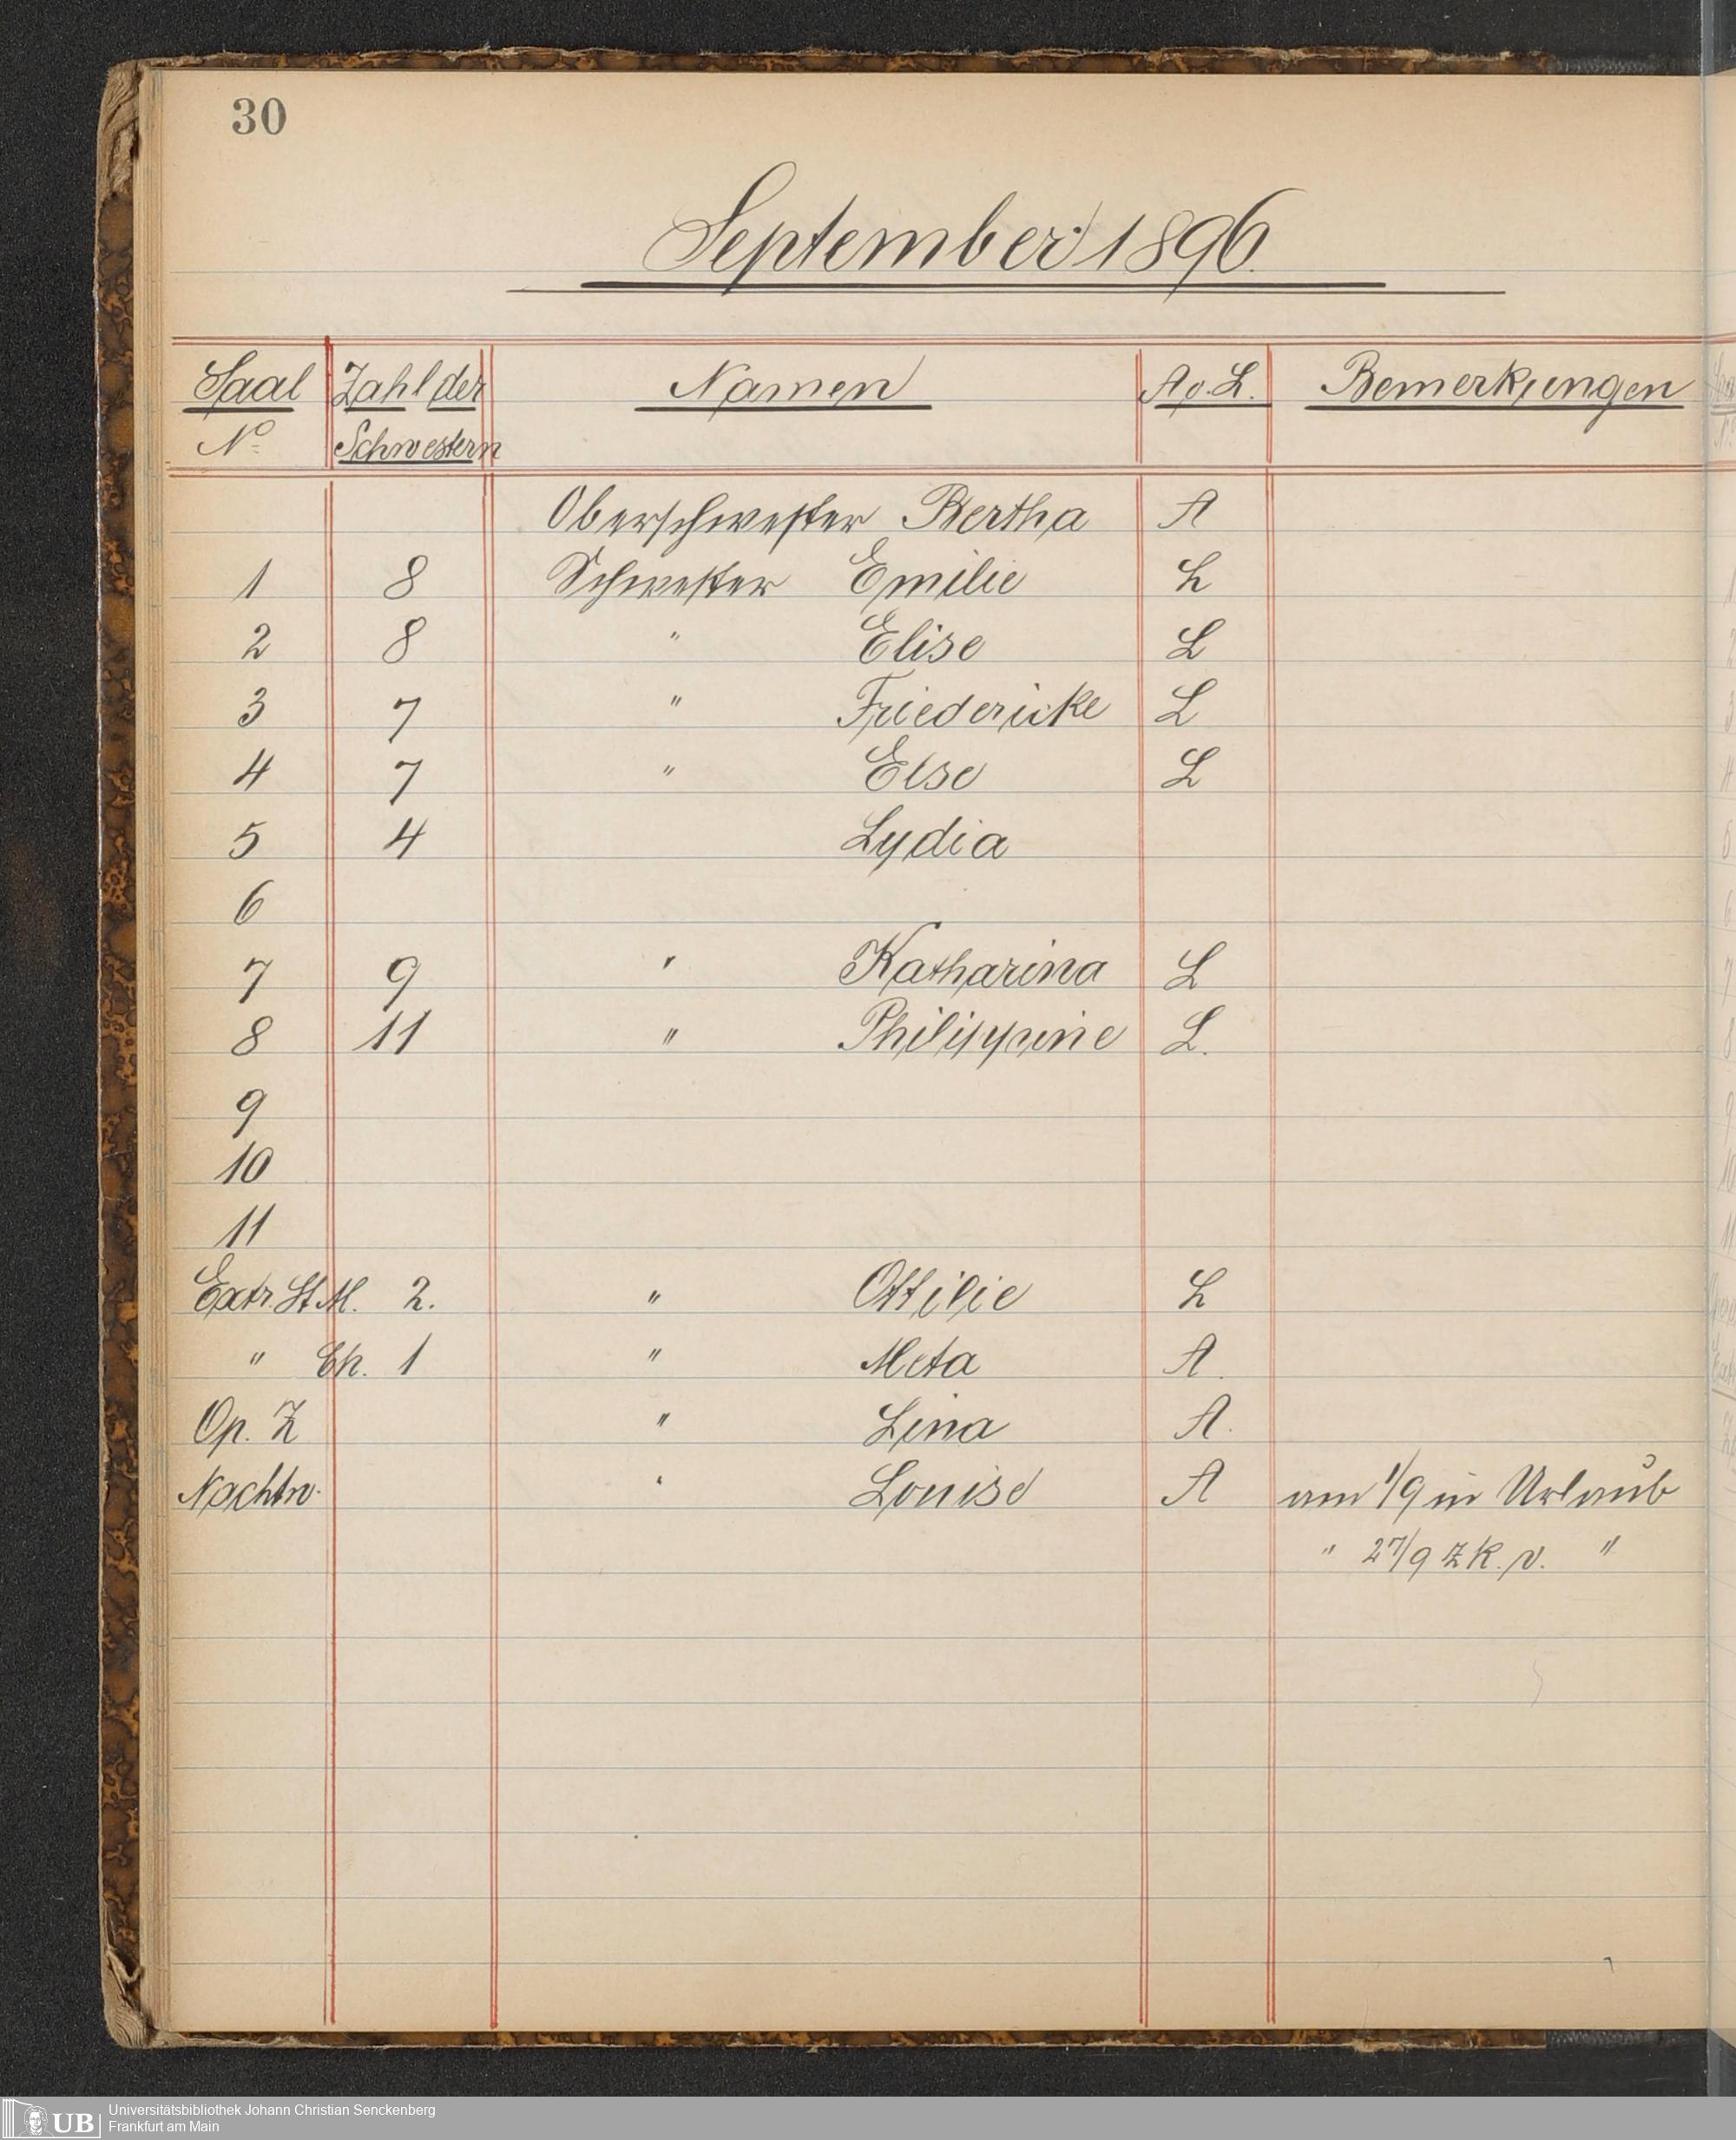 30
September 1896.
Saal Zahl der Namen A o. L. Bemerkungen
No. Schwestern
Oberschwester Bertha A
1 8 Schwester Emilie L
2 8 " Elise L
3 7 " Friedericke L
4 7 " Else L
5 4 Lydia
6
7 9 " Katharina L
8 11 " Philippine L.
9
10
11
Extr. St. M. 2. " Ottilie L
" Ch. 1 " Meta A.
Op. Z " Lina A.
Nachtw. " Louise A am 1/9 in Urlaub
" 27/9 zk. v. "
UB
Universitätsbibliothek Johann Christian Senckenberg
Frankfurt am Main